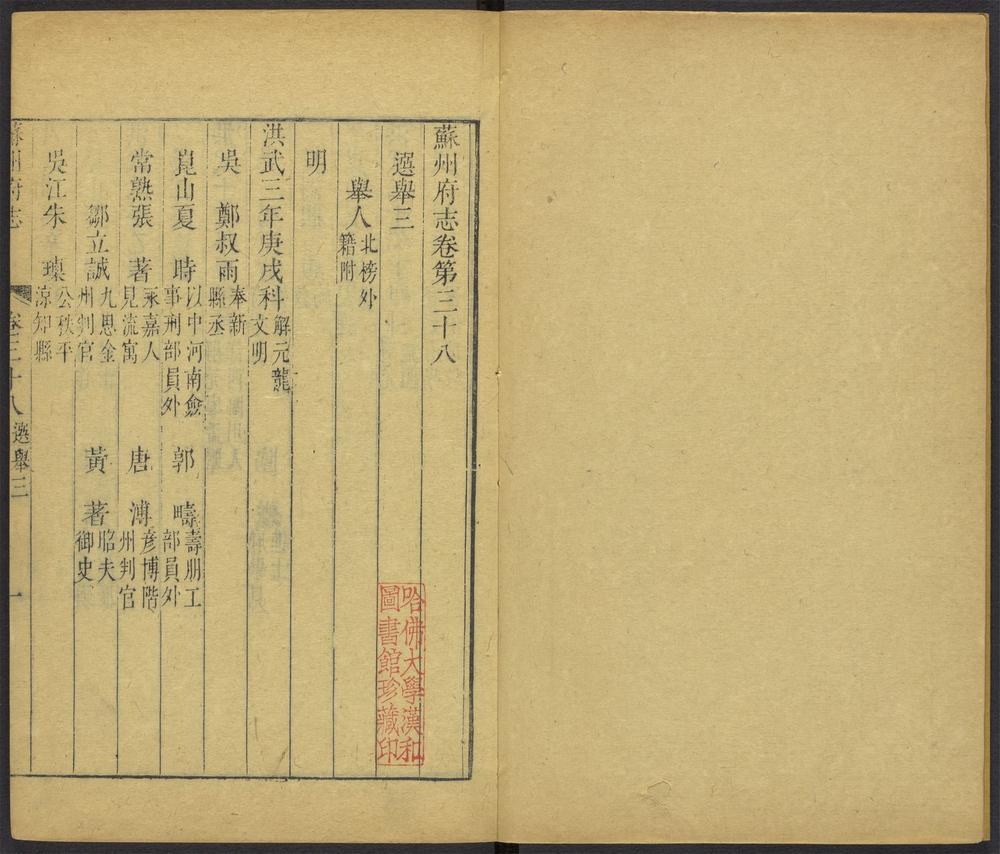 蘇州府志卷第三十八
選舉三
舉人北榜外籍附
明
洪武三年庚戌科解元龍文明
吳 鄭叔雨奉新縣丞
崑山夏 時以中河南僉事刑部員外 郭 疇壽朋工部員外
常熟張 著永嘉人見流寓 唐 溥彥博階州判官
鄒立誠九思金州判官 黃 著昭夫御史
吳江朱 公秩平涼知縣
蘇州府志 卷三十八選舉三 一
哈佛大學漢和
圖書館珍藏印